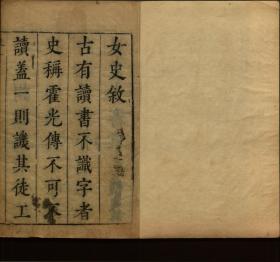 女史敘
古有讀書不識字者
史稱霍光傳不可不
讀蓋一則譏其徒工